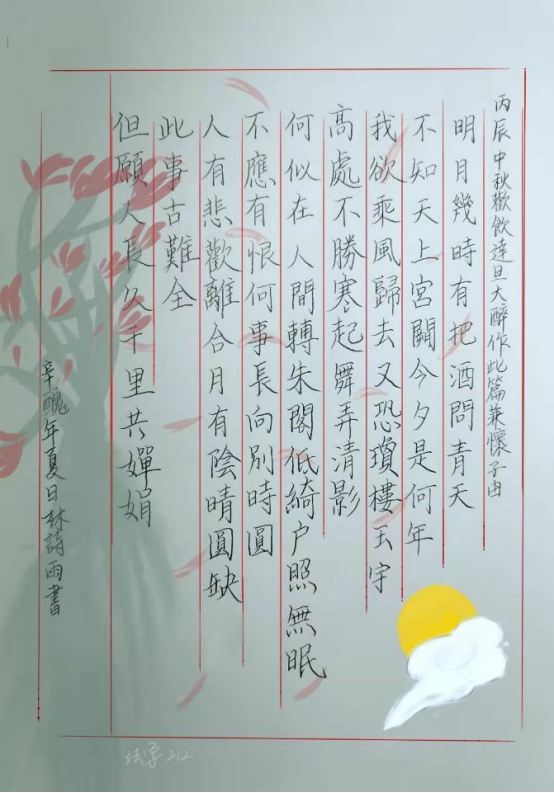 丙辰中秋歡飲達旦大醉作此篇兼懷子由
明月幾時有把酒問青天
不知天上宮闕今夕是何年
我欲乘風歸去又恐瓊樓玉宇
高處不勝寒起舞弄清影
何似在人間轉朱閣低綺户照無眠
不應有恨何事長向別時圓
人有悲歡離合月有陰晴圓缺
此事古難全
但願人長久千里共嬋娟
辛醜年夏日林詩雨書
法学212